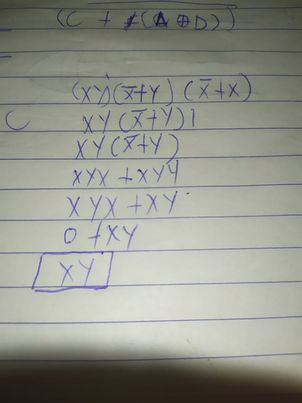 (C + (A ⊕ D))
(XY)(X̅+Y) (X̅+X)
C XY(X̅+Y)1
XY(X̅+Y)
XYX + XYY
XYX + XY
0 + XY
XY